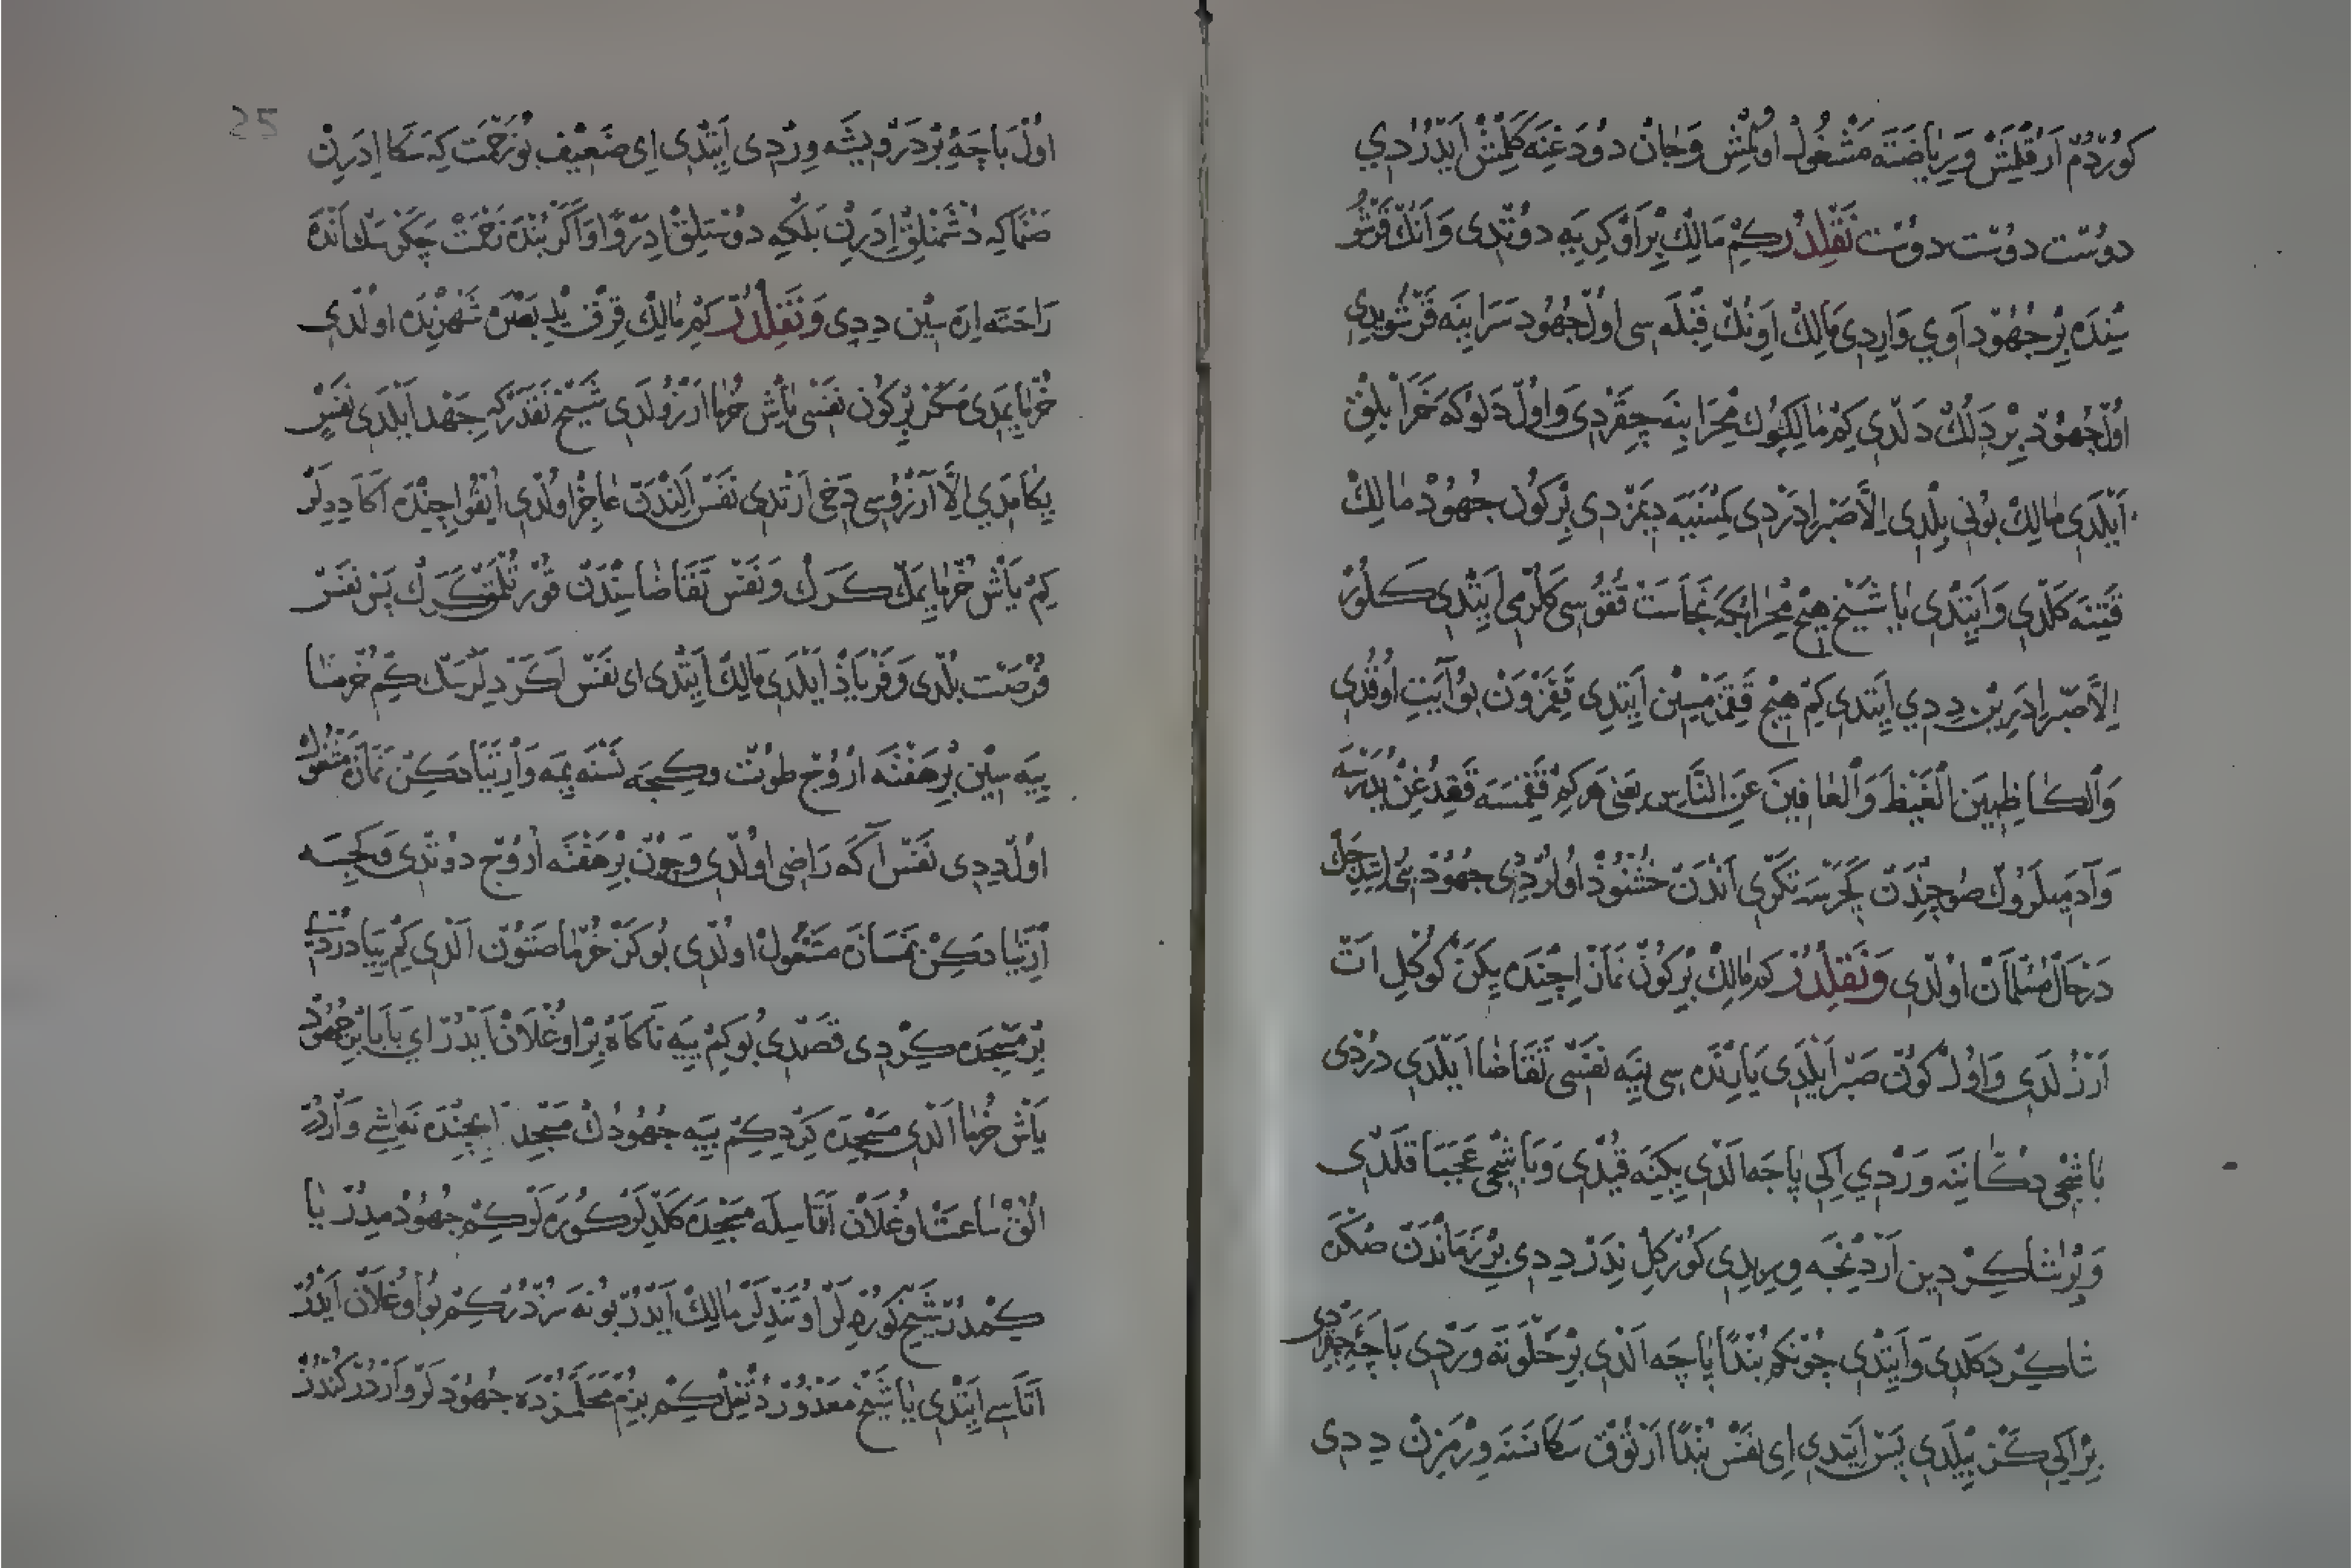 كوردم ارقلمش وریاضته مشغول اولمش وجان دودغنه كلمش ایدردی
دوست دوست دوست نقلدر كم مالك بر او كریه دوتدی وانك قرشو
سنده بر جهود اوی واردی مالك اونك قبله سی اول جهود سراینه قرشویدی
اول جهود بر دلك دلدی كم مالكوك محرابنه چقردی واول دلوكه نخرابلق
ایلدی مالك بونی بلدی الا صبر ادردی كمسنیه دیمزدی بر كون جهود مالك
قتنه كلدی وایتدی یا شیخ هیچ محرابكه نجاست ققوسی كلرمی ایتدی كلور
الا صبر ادرین ددی ایتدی كم هیچ ققمزمیسن ایتدی ققمزون بو آیت اوقدی
والكاظمین الغیظ والعافین عن الناس یعنی هركم ققمسه قققدغن یدرسه
وآدمیلروك صوچندن كچرسه تكری اندن خشنوذ اولردی جهود بنی ایتدجك
درحال مسلمان اولدی ونقلدر كه مالك بر كون نماز اچنده یكن كوكل ات
ارزلدی واول كون صبر ایلدی یارنده سی ینه نفسی تقاضا ایلدی دردی
باشجی دكاننه وردی اكی پاچه الدی یكنه قیدی وباشجی عجبا قلدی
وبر شاكردین اردنجه ویریدی كورگل ندر ددی بر زماندن صكره
شاكرد كلدی وایتدی چونكم بندا پاچه الدی بر خلوته وردی پاچه چقردی
بر اكی كز یلدی پس ایتدی ای نفس بندا ارتوق سكا نسنه ورمزن ددی
اول پاچه بر درویشه وردی ایتدی ای ضعیف بو زحمت كه سكا ادرن
صنماكه دشمنلق ادرن بلكه دوستلق ادرو اگر بنده زحمت چكرسك انده
راحته ایره سین ددی ونقلدر كم مالك قرق یل بصره شهرنده اولدی
خرما یمدی مكر بر كون نفسی یاش خرما ارزولدی شیخ نقدركه جهد ایلدی نفس
یكامدی الا آرزوسی دخی ارتدی نفس الندن عاجز اولدی ایقو اچنده اكا ددلر
كم یاش خرما یمك كرك ونفس تقاضاسندن قورتلمق كرك پس نفس
فرصت بلدی وفریاذ ایلدی مالك ایتدی ای نفس اكر دلرسك كم خرما
ییه سین بر هفته اروج طوت وكیجه نسنه یمه وارتیادكن نمازه مشغول
اول ددی نفس آكه راضی اولدی وچون بر هفته اروج دوتدی وكجسه
ارتیادكن نمازه مشغول اولدی بو كز خرما صتون الدی كم ییا دردی
بر مسجده كردی قصدی بو كم ییه ناكاه بر اوغلان ایدر ای بابا بر جهود
یاش خرما الدی مسجده كردی كم ییه جهودك مسجد ایچنده نه ایشی واردر
الق ساعت اوغلان اتاسیله مسجده كلدیلر كوره لر كم جهودمیدر یا
كمدر شیخ كوردیلر اوتندیلر مالك ایدر بو نه سزدر كم بو اوغلان ایدر
اتاسی ایتدی یا شیخ معذور دتغل كم بزم محلمزده جهودلر واردر كندز
25